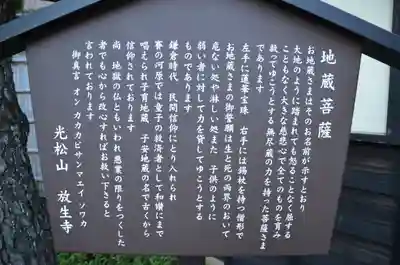 地蔵菩薩
お地蔵さまはそのお名前が示すとおり
大地のように踏まれても怒ることなく屈する
こともなく大きな慈悲心で全てのものを育み
救ってゆこうとする無尽蔵の力を持った菩薩さま
であります
左手に蓮華宝珠　右手には錫杖を持つ僧形で
お地蔵さまの御誓願は生と死の両界のおいて
危ない処や淋しい処また　子供のように
弱い者に対して力を貸してゆこうとする
ものであります
鎌倉時代　民間信仰にとり入れられ
賽の河原では童子の救済者として和讃にまで
唱えられ子育地蔵　子安地蔵の名で古くから
信仰されております
尚　地獄の仏ともいわれ悪業の限りをつくした
者でも心から改心すればお救い下さると
言われております
御真言　オン　カカカビサンマエイ　ソワカ
光松山　放生寺